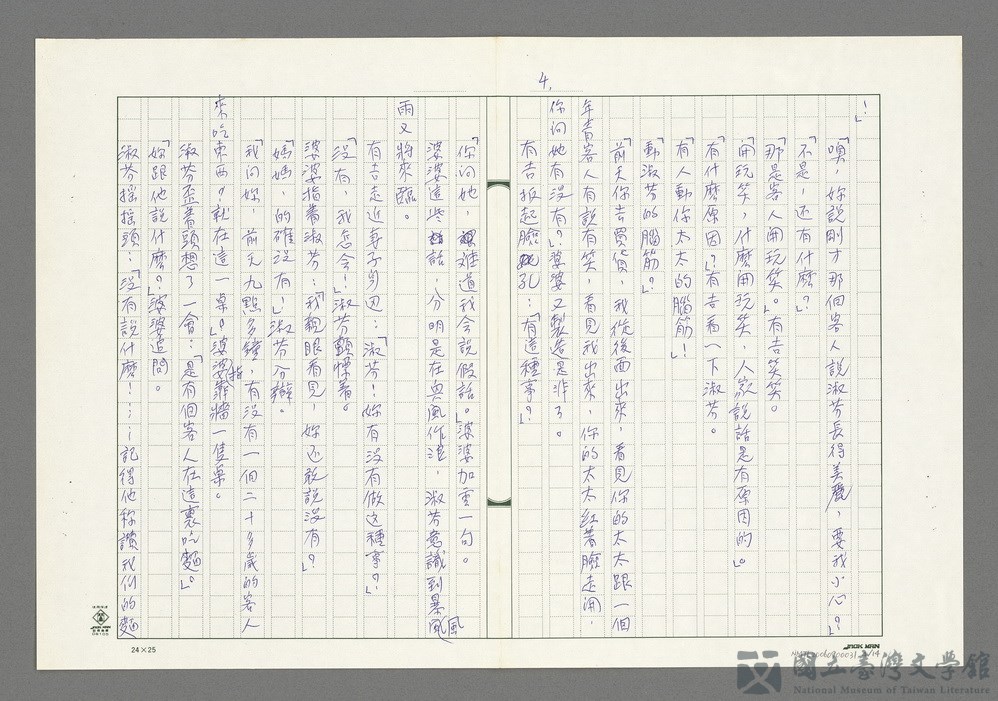 4.
！」
「噢，妳說剛才那個客人說淑芬長得美麗，要我小心？」
「不是，还有什麼？」
「那是客人開玩笑。」有吉笑笑。
「開玩笑，什麼開玩笑，人家說話是有原因的。」
「有什麼原因？」有吉看一下淑芬。
「有人動你太太的腦筋！」
「動淑芬的腦筋？」
「前天你去買貨，我從後面出來，看見你的太太跟一個
年青客人有說有笑，看見我出來，你的太太紅著臉走開，
你問她有沒有？」婆婆又製造是非了。
有吉扳起臉孔：「有這種事？」
「你问她，难道我会說假話。」婆婆加重一句。
婆婆這些話，分明是在興風作浪，淑芬意識到暴風
雨又將來臨。
有吉走近妻子身边：「淑芬！妳有沒有做这種事？」
「沒有，我怎会！」淑芬顫慄着。
婆婆指著淑芬：「我親眼看見，妳还敢說沒有？」
「媽媽，的確沒有！」淑芬分辯。
「我问妳，前天九點多鐘，有沒有一個二十多歲的客人
來吃東西？就在這一桌？」婆婆指靠牆一隻桌。
淑芬歪著頭想了一會：「是有個客人在這裏吃麵。」
「妳跟他說什麼？」婆婆追問。
淑芬搖搖頭：「沒有說什麼！……記得他称讚我们的麵
24×25
JACK MAN
國立臺灣文學館
National Museum of Taiwan Literature